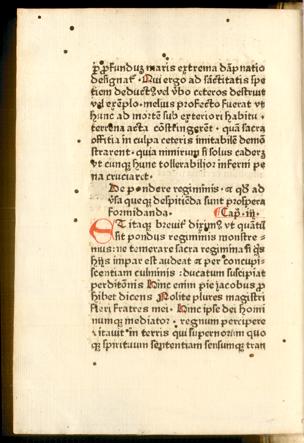 ꝓ ꝓfunduʒ maris extrema dāpnatio
designat᷑ · Qui ergo ad sāctitatis spe
tiem deduct⁹ vel v̓bo ceteros destruit
vel exēplo · melius profecto fuerat vt
hunc ad mortē sub exteriori habitu ·
terrena acta cōstrīgerent · quā sacra
offitia in culpa ceteris imitabilē demō
strarent · quia nimirum si solus caderꝫ
vt cunqꝫ hunc tollerabilior inferni pe
na cruciaret ·
De pondere regiminis · ⁊ qꝫ ad
v̓sa queqꝫ despitiēda sunt prospera
formidanda · Cap̄ · iij ·
St itaqꝫ breuit᷑ dixim⁹ vt quātū
sit pondus regiminis monstre
mus: ne temerare sacra regimina si qͥs
hijs impar est audeat ⁊ per concupi
scentiam culminis : ducatum suscipiat
perditōnis Hinc enim pie iacobus ꝓ
hibet dicens Nolite plures magistri
fieri fratres mei · Hinc ipse dei homi
numqꝫ mediator · regnum percipere
vitauit in terris qui supernorum quo
qꝫ spirituum sentētiam sensumqꝫ tran